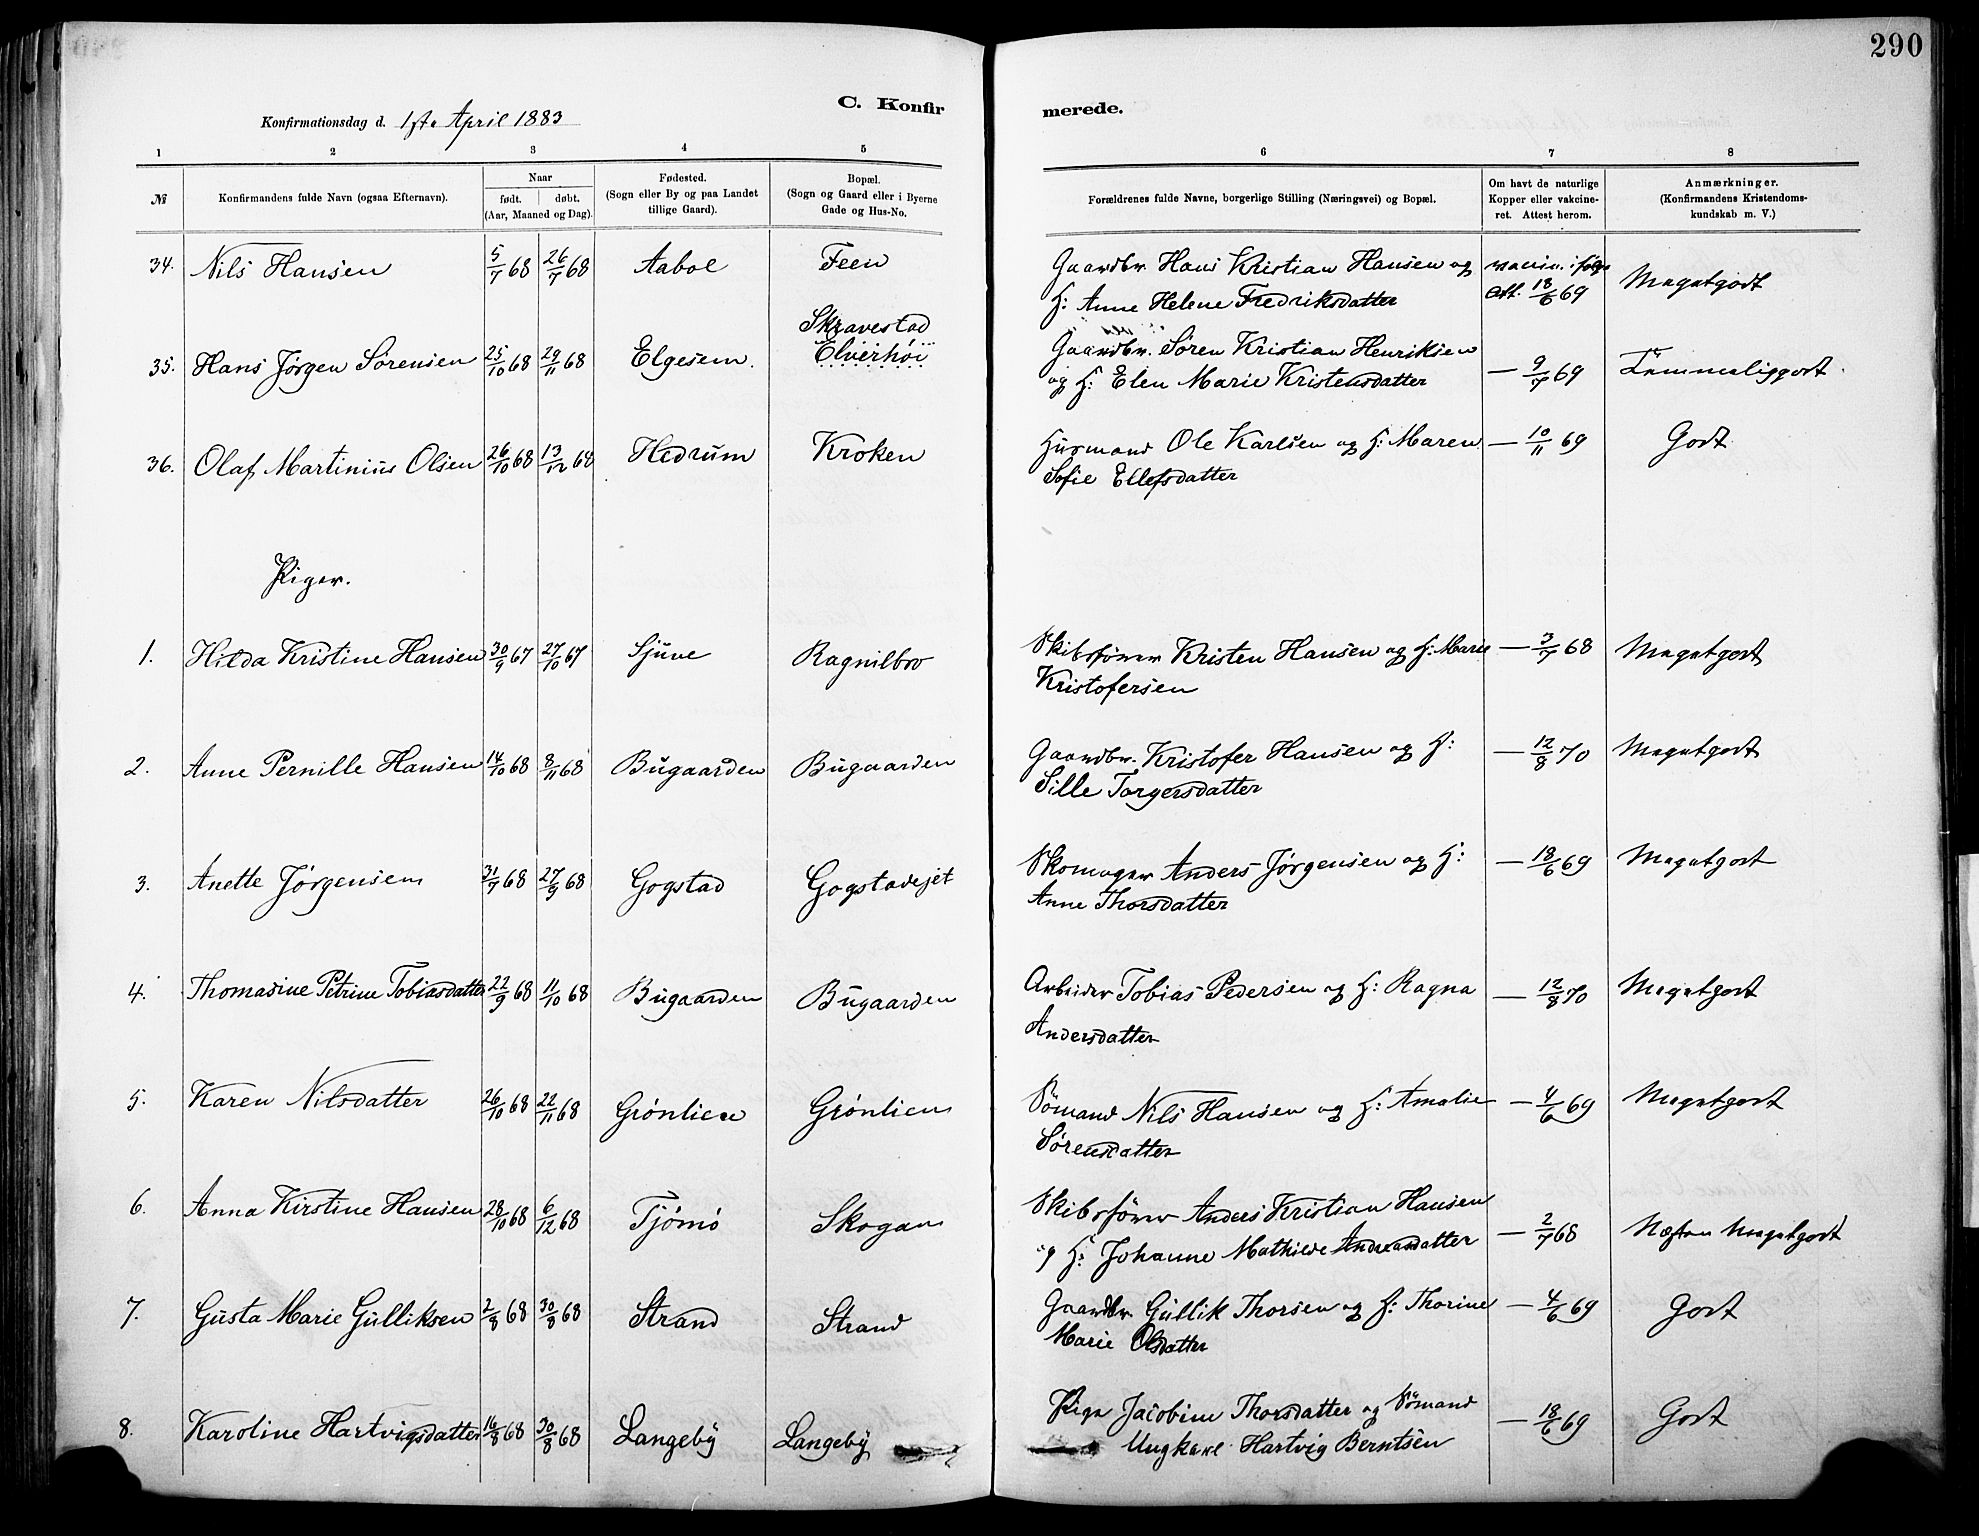 290
C. Konfir merede.
Konfirmationsdag d. 1ste April 1883
1 2 3 4 5 6 7 8
№ Konfirmandens fulde Navn (ogsaa Efternavn). Naar født. døbt. (Aar, Maaned og Dag). Fødested. (Sogn eller By og paa Landet tillige Gaard). Bopæl. (Sogn og Gaard eller i Byerne Gade og Hus-No. Forældrenes fulde Navne, borgerlige Stilling (Næringsvei) og Bopæl. Om havt de naturlige Kopper eller vakcineret. Attest herom. Anmærkninger. (Konfirmandens Kristendomskundskab m. V.)
34. Nils Hansen 5/7 68 26/7 68 Aabol Feen Gaardbr. Hans Kristian Hansen og vaccin. ifølge Megetgodt
H: Anne Helene Fredriksdatter Att. 18/6 69
Skravestad
35. Hans Jørgen Sørensen 25/10 68 29/11 68 Elgesem. Elverhøi Gaardbr. Søren Kristian Henriksen
og H: Elen Marie Kristensdatter — 9/7 69 Temmeliggodt.
36. Olaf Martinius Olsen 26/10 68 13/12 68 Hedrum Kroken Husmand Ole Karlsen og H: Maren — 10/11 69 Godt
Sofie Ellefsdatter
Piger.
1. Hilda Kristine Hansen 30/9 67 27/10 67 Sjuve Ragnilbro Skibsfører Kristen Hansen og H: Marie — 3/7 68 Megetgodt
Kristofersen
2. Anne Pernille Hansen 14/10 68 8/11 68 Bugaarden Bugaarden Gaardbr. Kristofer Hansen og H: — 12/8 70 Megetgodt
Sille Torgersdatter
3. Anette Jørgensen 31/7 68 27/9 68 Gogstad Gogstadejet Skomager Anders Jørgensen og H: — 18/6 69 Megetgodt
Anne Thorsdatter
4. Thomasine Petrine Tobiasdatter 22/9 68 11/10 68 Bugaarden Bugaarden Arbeider Tobias Pedersen og H: Ragna — 12/8 70 Megetgodt
Andersdatter
5. Karen Nilsdatter 26/10 68 22/11 68 Grønlien Grønlien Sømand Nils Hansen og H: Amalie — 4/6 69 Megetgodt
Sørensdatter
6. Anna Kirstine Hansen 28/10 68 6/12 68 Tjømø Skogan Skibsfører Anders Kristian Hansen
og H: Johanne Mathilde Andreasdatter — 2/7 68 Næsten Megetgodt
7. Gusta Marie Gulliksen 2/8 68 30/8 68 Strand Strand Gaardbr. Gullik Thorsen og H: Thorine — 4/6 69 Godt
Marie Olsdatter
8. Karoline Hartvigsdatter 16/8 68 30/8 68 Langeby Langeby Pige Jacobine Thorsdatter og Sømand — 18/6 69 Godt
Ungkarl Hartvig Berntsen